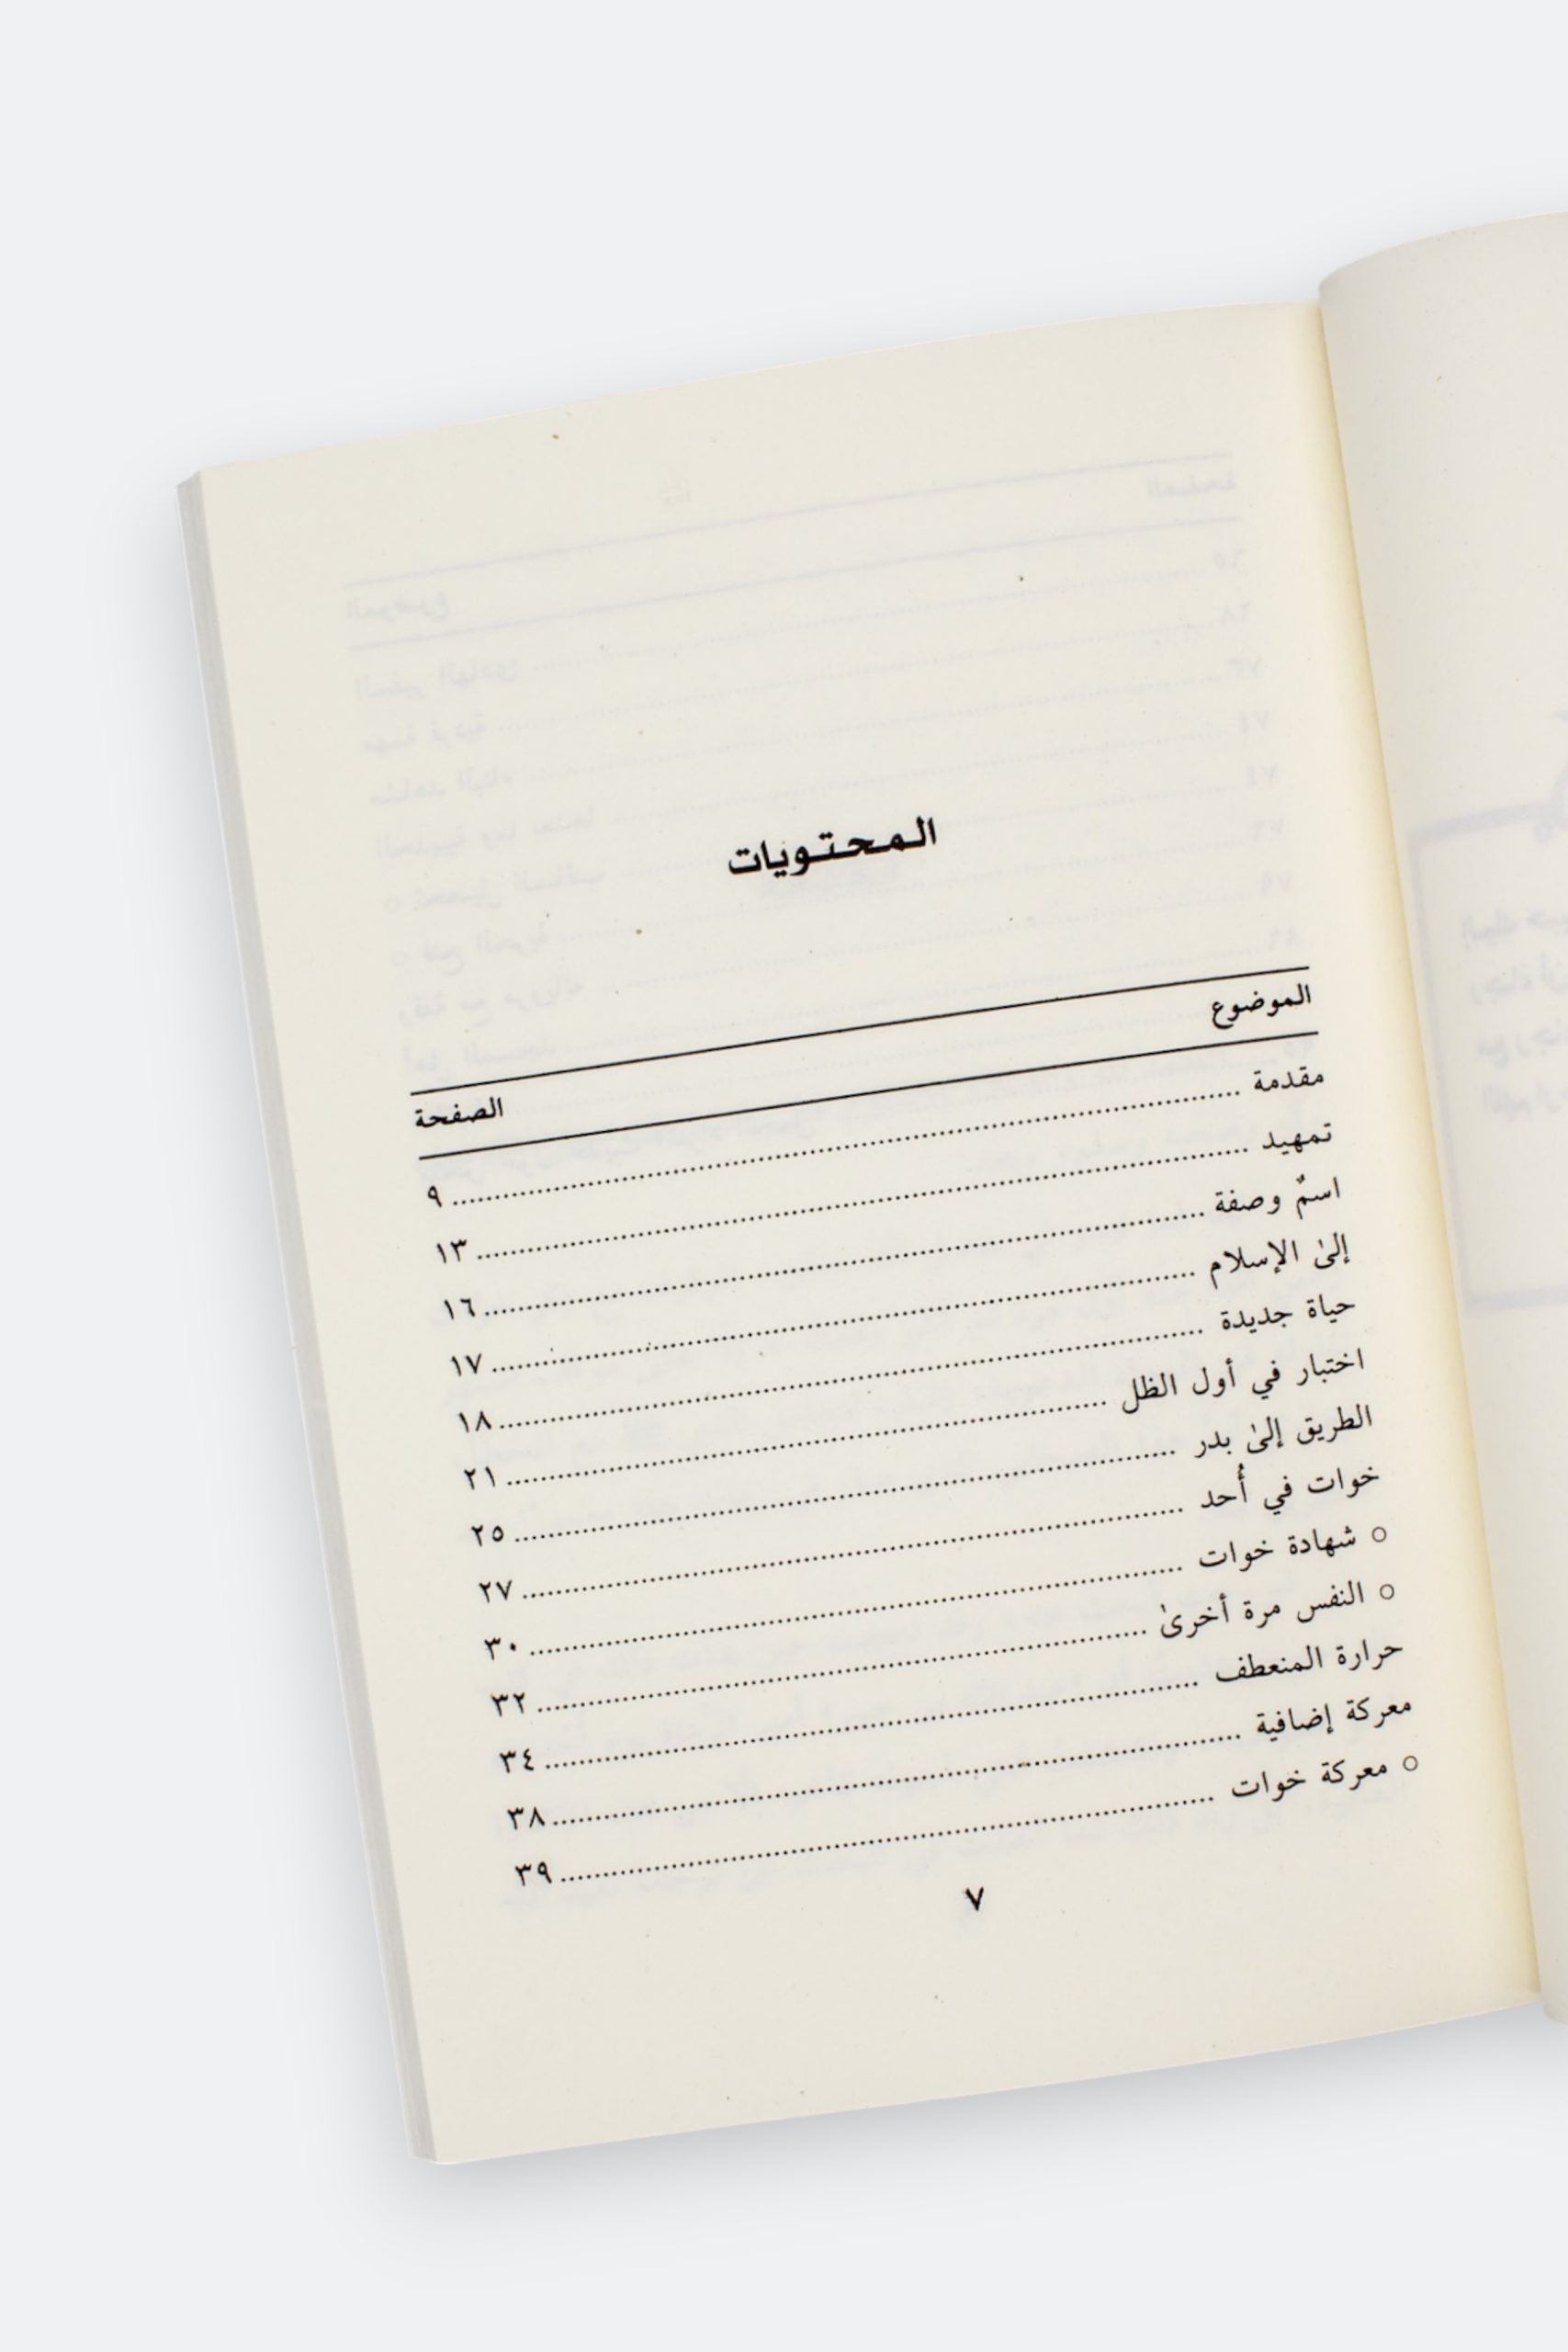 المحتويات
الموضوع الصفحة
مقدمة ........ ٩
تمهيد ........ ١٣
اسمٌ وصفة ........ ١٦
إلىٰ الإسلام ........ ١٧
حياة جديدة ........ ١٨
اختبار في أول الظل ........ ٢١
الطريق إلىٰ بدر ........ ٢٥
خوات في أُحد ........ ٢٧
○ شهادة خوات ........ ٣٠
○ النفس مرة أخرىٰ ........ ٣٢
حرارة المنعطف ........ ٣٤
معركة إضافية ........ ٣٨
○ معركة خوات ........ ٣٩
٧